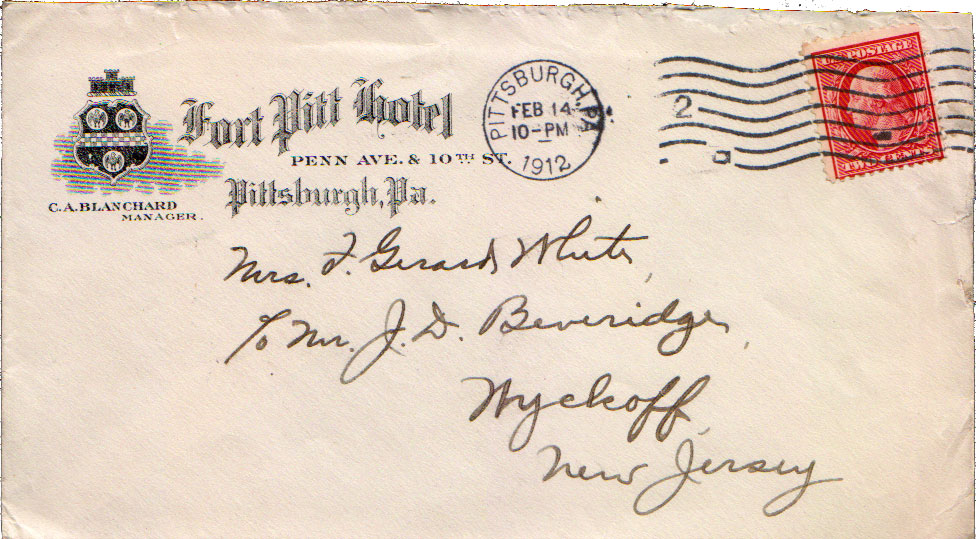 Fort Pitt Hotel
PENN AVE. & 10TH ST.
Pittsburgh, Pa.
C. A. BLANCHARD
MANAGER.
PITTSBURGH, PA.
FEB 14
10-PM
1912
2
U.S. POSTAGE
TWO CENTS
Mrs. F. Gerard White,
c/o Mr. J. D. Beveridge,
Wyckoff,
New Jersey